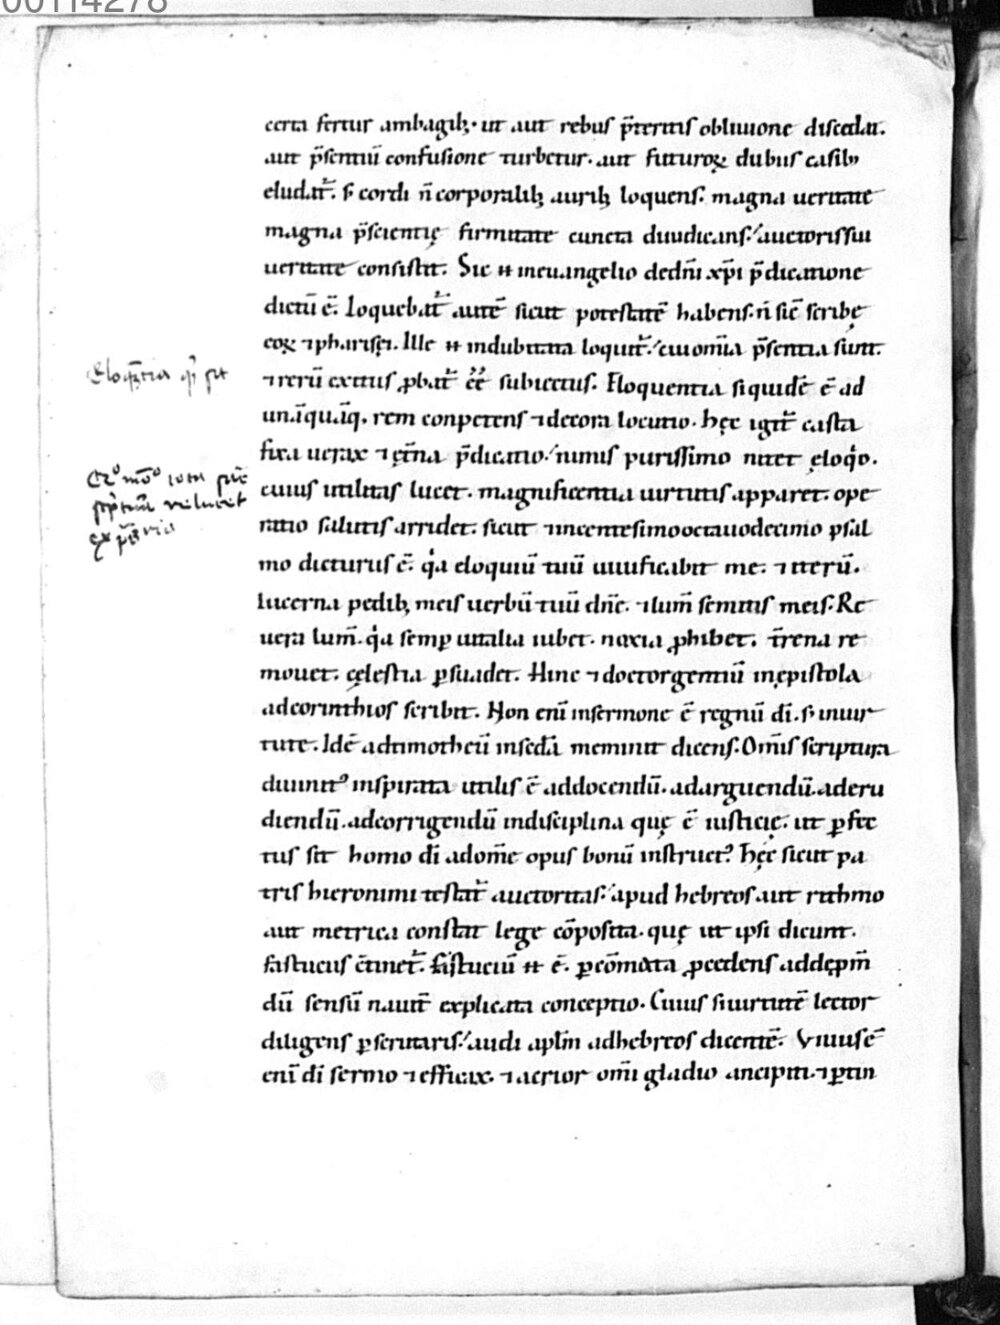 00114278
certa fertur ambagibꝫ· ut aut rebus p̄teritis obliuione discedat.
aut p̄sentiū confusione turbetur. aut futuroꝝ dubiis casibꝫ
eludat᷑. s; cordi n̄ corporalibꝫ auribꝫ loquens. magna ueritate
magna p̄scientię firmitate cuncta diiudicans. auctoris sui
ueritate consistit. Sic ⁊ ineuangelio dedn̄i xp̄i p̄dicatione
dictū ē. loquebat᷑ autē sicut potestatē habens. n̄ sic̄ scribę
eoꝝ ⁊pharisęi. Ille ⁊ indubitata loquit᷑. cui om̄ia p̄sentia sunt.
⁊rerū exitus ꝓbat᷑ ēē subiectus. Eloquentia siquidē ē ad
unāquāq. rem conpetens ⁊decora locutio. hęc igit᷑ casta
fixa uerax ⁊ ęt̄na p̄dicatio. nimis purissimo nitet ęloq̊o.
cuius utilitas lucet. magnificentia uirtutis apparet. ope
ratio salutis arridet. sicut ⁊incentesimooctauodecimo psal
mo dicturus ē. q̓a eloquiū tuū uiuificabit me. ⁊ iterū.
lucerna pedibꝫ meis uerbū tuū dn̄e. ⁊lum̄ semitis meis. Re
uera lum̄. q̓a semꝑ uitalia iubet. noxia ꝓhibet. t̄rena re
mouet. cęlestia ꝑsuadet. Hinc ⁊doctorgentiū inępistola
adcorinthios scribit. Non enī insermone ē regnū dī. s; inuir
tute. Idē adtimotheū insedā meminit dicens. Om̄is scriptura
diuinit᷒ inspirata utilis ē addocendū. adarguendū. aderu
diendū. adcorrigendū indisciplina quę ē iusticię. ut ꝑfec
tus sit homo dī adom̄e opus bonū instruct᷒ hęc sicut pa
tris hieronimi testat᷑ auctoritas. apud hebreos aut rithmo
aut metrica constat lege cōposita. quę ut ipsi dicunt.
fastuciis c̄tinet᷑. fastuciū ⁊ ē. ꝑcōmata ꝓcedens addępm̄
dū sensū nauit̄ explicata conceptio. Cuius siuirtutē lector
diligens ꝑscrutaris. audi apl̄m adhebreos dicentē. Viuus ē
enī dī sermo ⁊efficax. ⁊acrior om̄i gladio ancipiti. ⁊ꝑtin
Eloqn̄tia qͥ sit